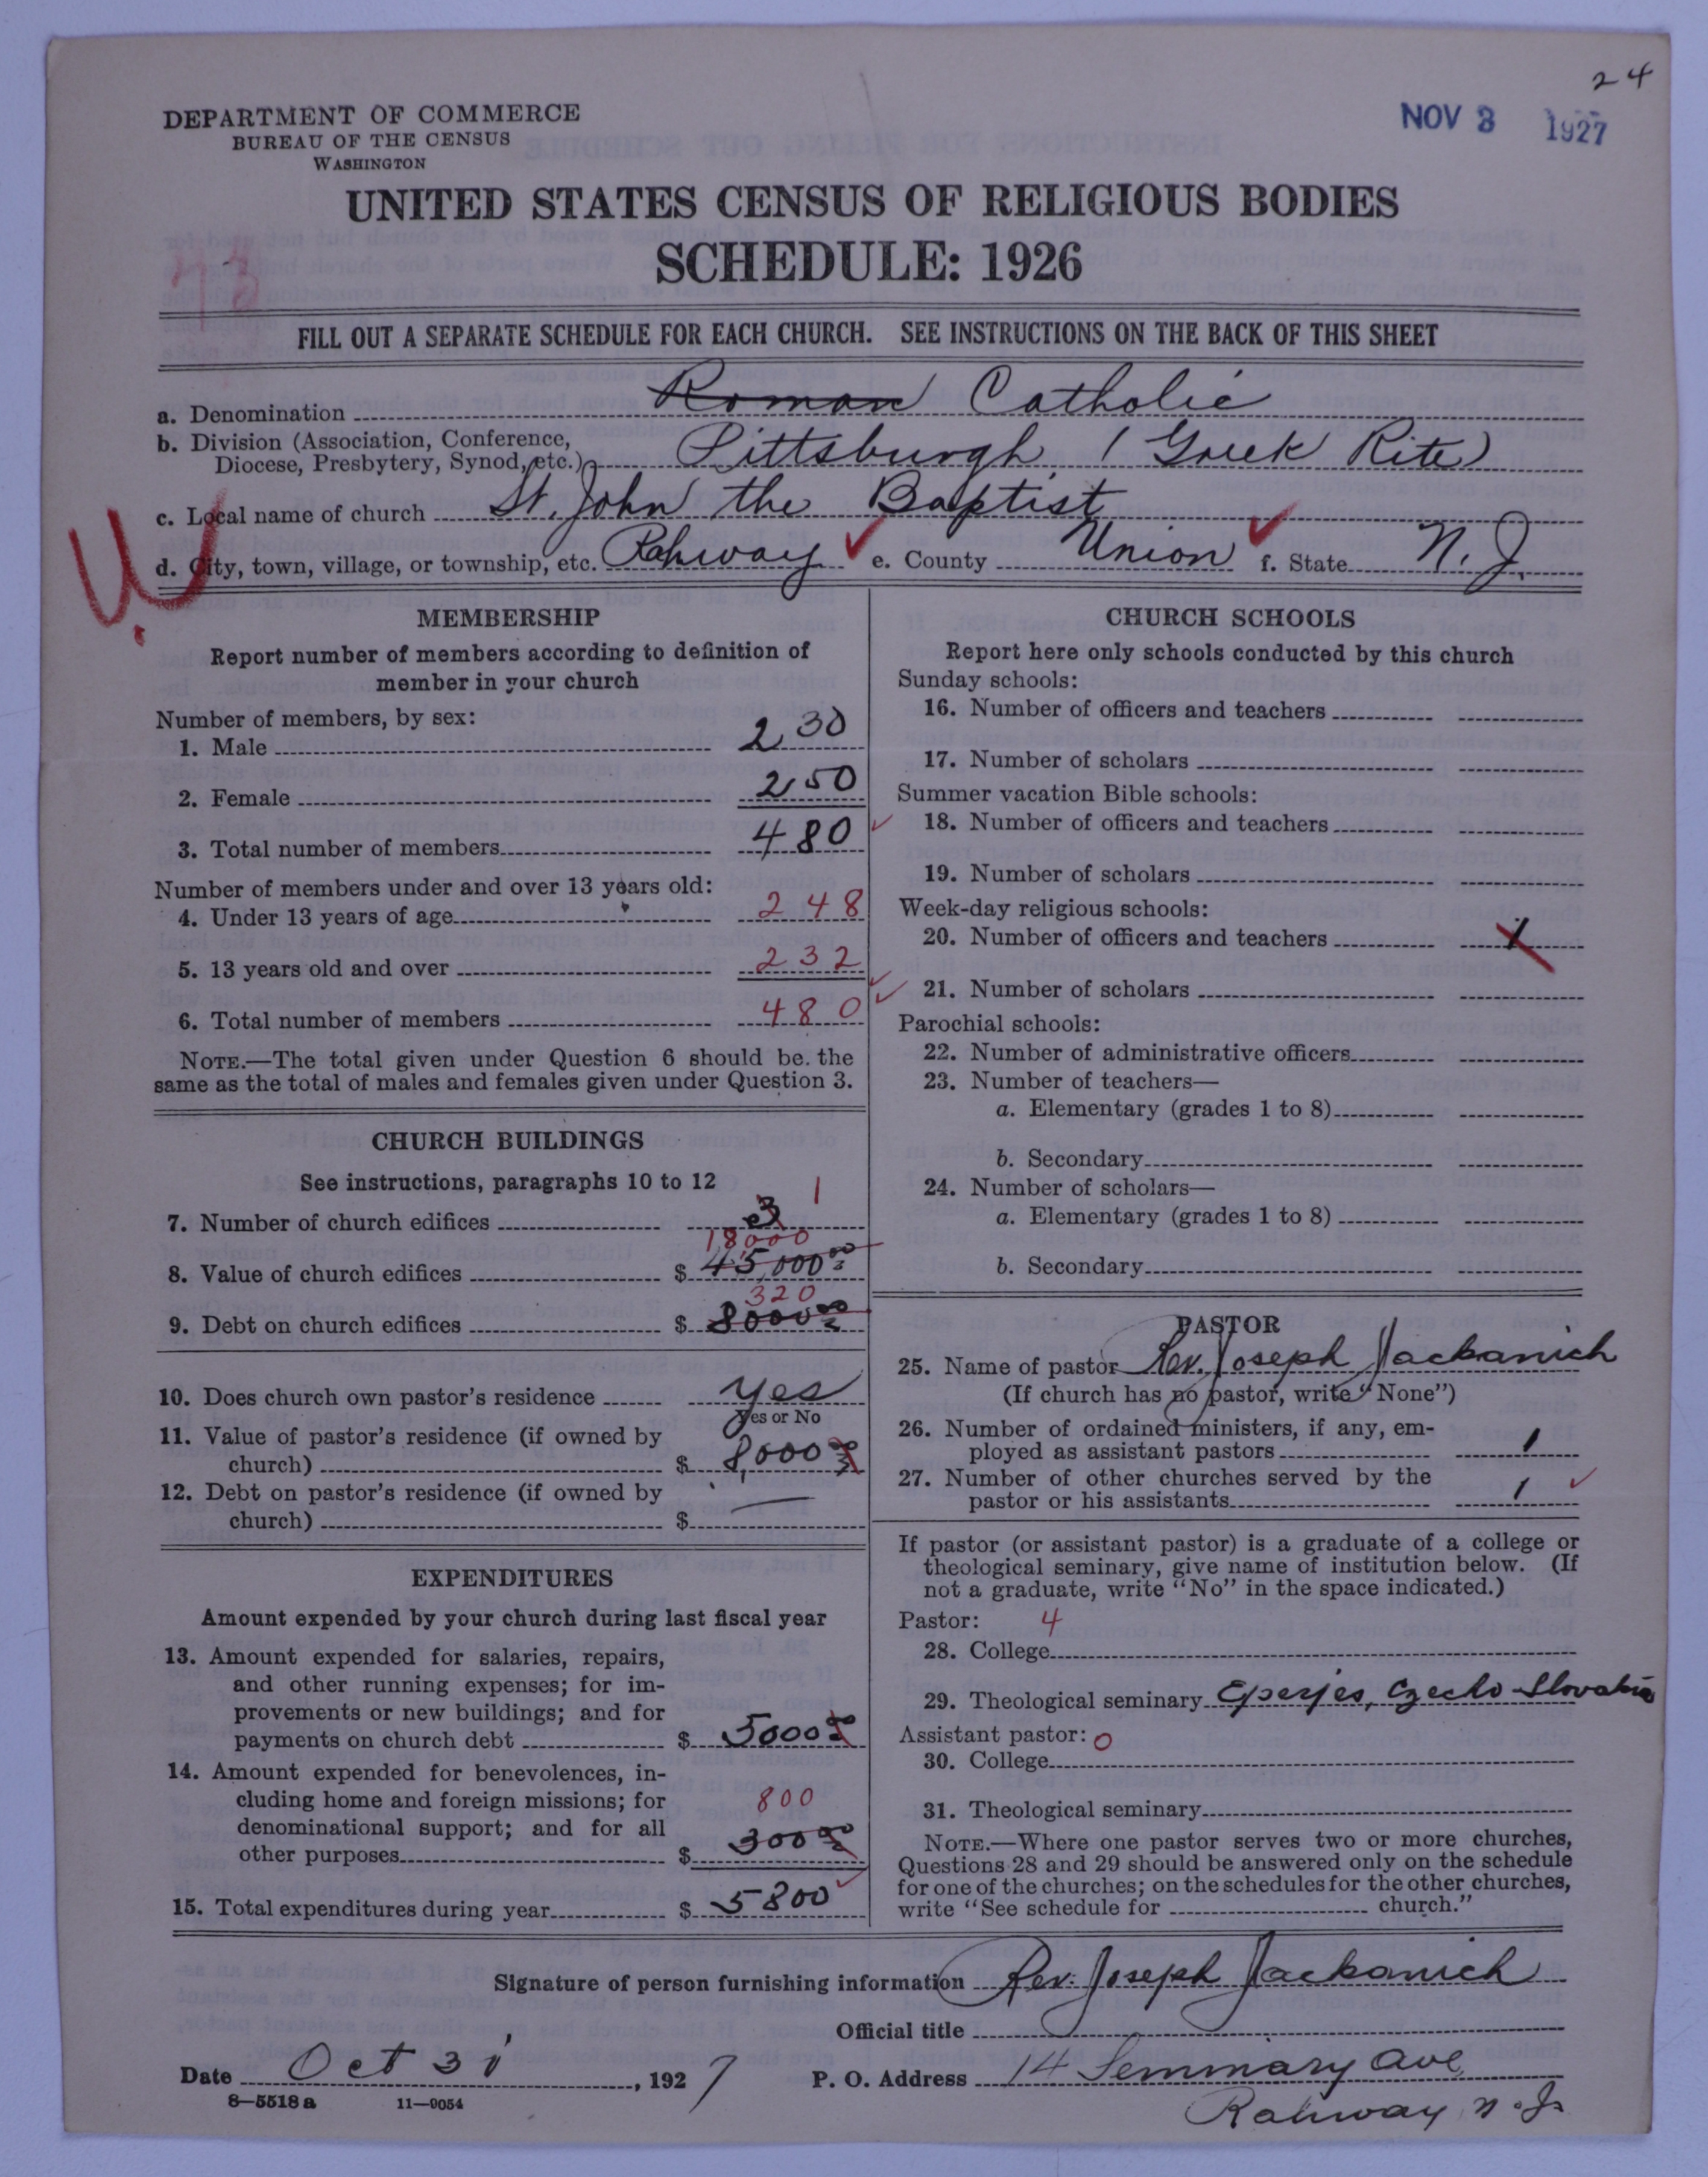 24
NOV 3 1927
DEPARTMENT OF COMMERCE
BUREAU OF THE CENSUS
WASHINGTON
UNITED STATES CENSUS OF RELIGIOUS BODIES
SCHEDULE: 1926
FILL OUT A SEPARATE SCHEDULE FOR EACH CHURCH. SEE INSTRUCTIONS ON THE BACK OF THIS SHEET
a. Denomination Roman Catholic
b. Division (Association, Conference,
Diocese, Presbytery, Synod, etc.) Pittsburgh (Greek Rite)
c. Local name of church St. John the Baptist
d. City, town, village, or township, etc. Rahway e. County Union f. State N. J.
MEMBERSHIP
Report number of members according to definition of
member in your church
Number of members, by sex:
1. Male 230
2. Female 250
3. Total number of members 480
Number of members under and over 13 years old:
4. Under 13 years of age 248
5. 13 years old and over 232
6. Total number of members 480
NOTE.—The total given under Question 6 should be the
same as the total of males and females given under Question 3.
CHURCH BUILDINGS
See instructions, paragraphs 10 to 12
7. Number of church edifices 3 1
18000
8. Value of church edifices $ 45,000 00
320
9. Debt on church edifices $ 8000 00
10. Does church own pastor's residence yes
Yes or No
11. Value of pastor's residence (if owned by
church) $ 8,000 00
12. Debt on pastor's residence (if owned by
church) $ —
EXPENDITURES
Amount expended by your church during last fiscal year
13. Amount expended for salaries, repairs,
and other running expenses; for im-
provements or new buildings; and for
payments on church debt $ 5000 00
14. Amount expended for benevolences, in-
cluding home and foreign missions; for
denominational support; and for all
800
other purposes $ 300 00
15. Total expenditures during year $ 5800
CHURCH SCHOOLS
Report here only schools conducted by this church
Sunday schools:
16. Number of officers and teachers
17. Number of scholars
Summer vacation Bible schools:
18. Number of officers and teachers
19. Number of scholars
Week-day religious schools:
20. Number of officers and teachers 1
21. Number of scholars
Parochial schools:
22. Number of administrative officers
23. Number of teachers—
a. Elementary (grades 1 to 8)
b. Secondary
24. Number of scholars—
a. Elementary (grades 1 to 8)
b. Secondary
PASTOR
25. Name of pastor Rev. Joseph Jackanich
(If church has no pastor, write "None")
26. Number of ordained ministers, if any, em-
ployed as assistant pastors 1
27. Number of other churches served by the
pastor or his assistants 1
If pastor (or assistant pastor) is a graduate of a college or
theological seminary, give name of institution below. (If
not a graduate, write "No" in the space indicated.)
Pastor: 4
28. College
29. Theological seminary Eperjes, Czecho-Slovakia
Assistant pastor: 0
30. College
31. Theological seminary
NOTE.—Where one pastor serves two or more churches,
Questions 28 and 29 should be answered only on the schedule
for one of the churches; on the schedules for the other churches,
write "See schedule for church."
Signature of person furnishing information Rev. Joseph Jackanich
Official title
Date Oct 31, 1927 P. O. Address 14 Seminary Ave
Rahway N. J.
8—5518 a 11—9054